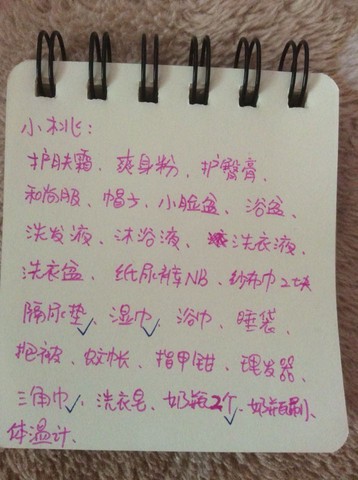 小桃:
护肤霜、爽身粉、护臀膏、
和尚服、帽子、小脸盆、浴盆、
洗发液、沐浴液、洗衣液、
洗衣盆、纸尿裤NB、纱布巾2块
隔尿垫、湿巾、浴巾、睡袋、
抱被、蚊帐、指甲钳、理发器、
三角巾、洗衣皂、奶瓶2个、奶瓶刷、
体温计、